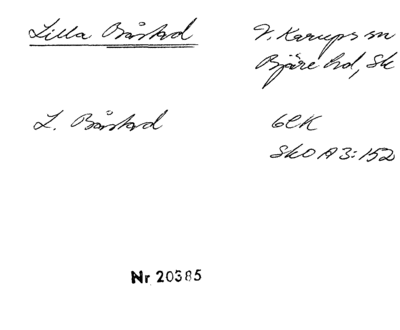 Lilla Båstad
V. Karups sn
Bjäre hd, Sk
L. Båstad
GEK
SkO A3:152
Nr 20385